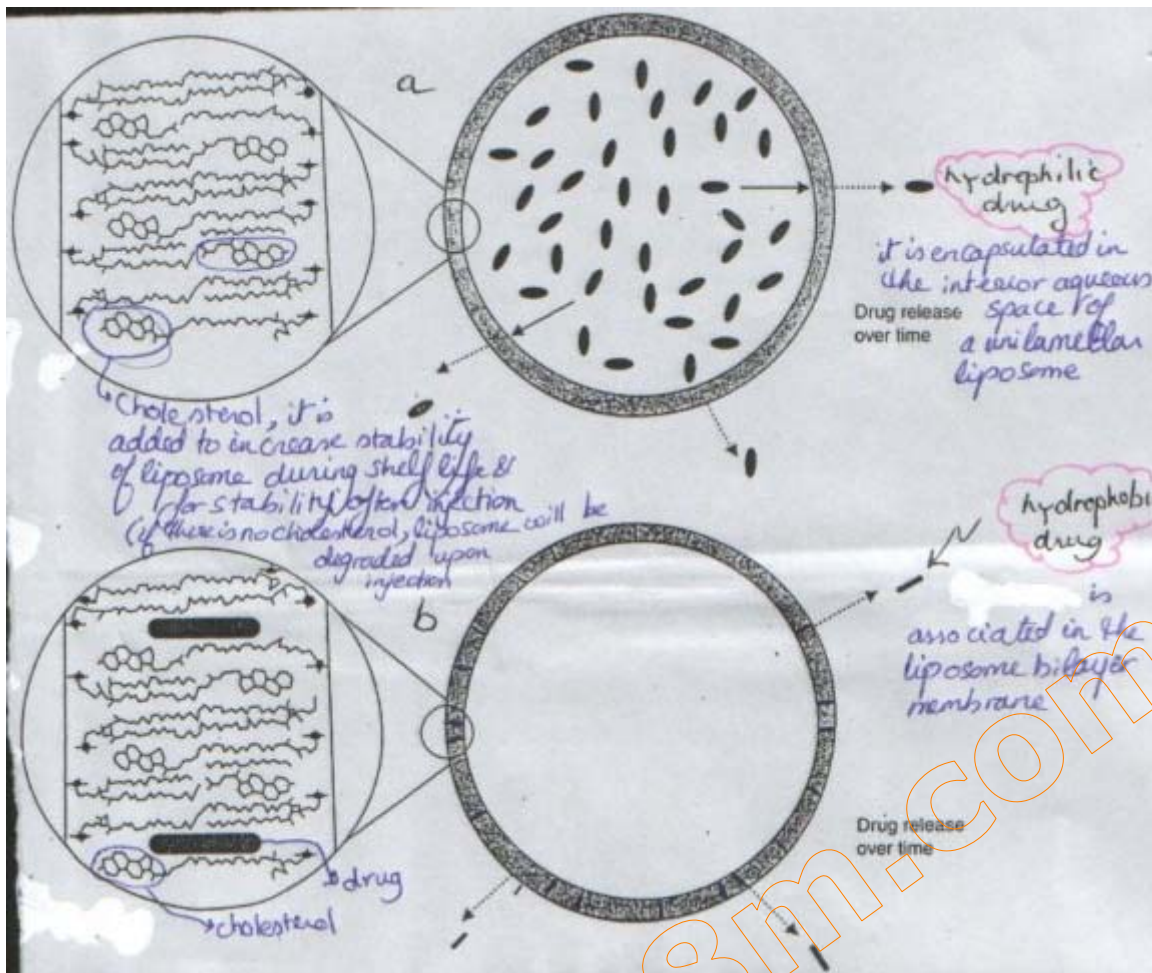 a
hydrophilic
drug
it is encapsulated in
the interior aqueous
space of
a unilamellar
liposome
Drug release
over time
Cholesterol, it is
added to increase stability
of liposome during shelf life &
for stability after injection
(if there is no cholesterol, liposome will be
degraded upon
injection
b
hydrophobic
drug
is
associated in the
liposome bilayer
membrane
Drug release
over time
drug
cholesterol
8m.com